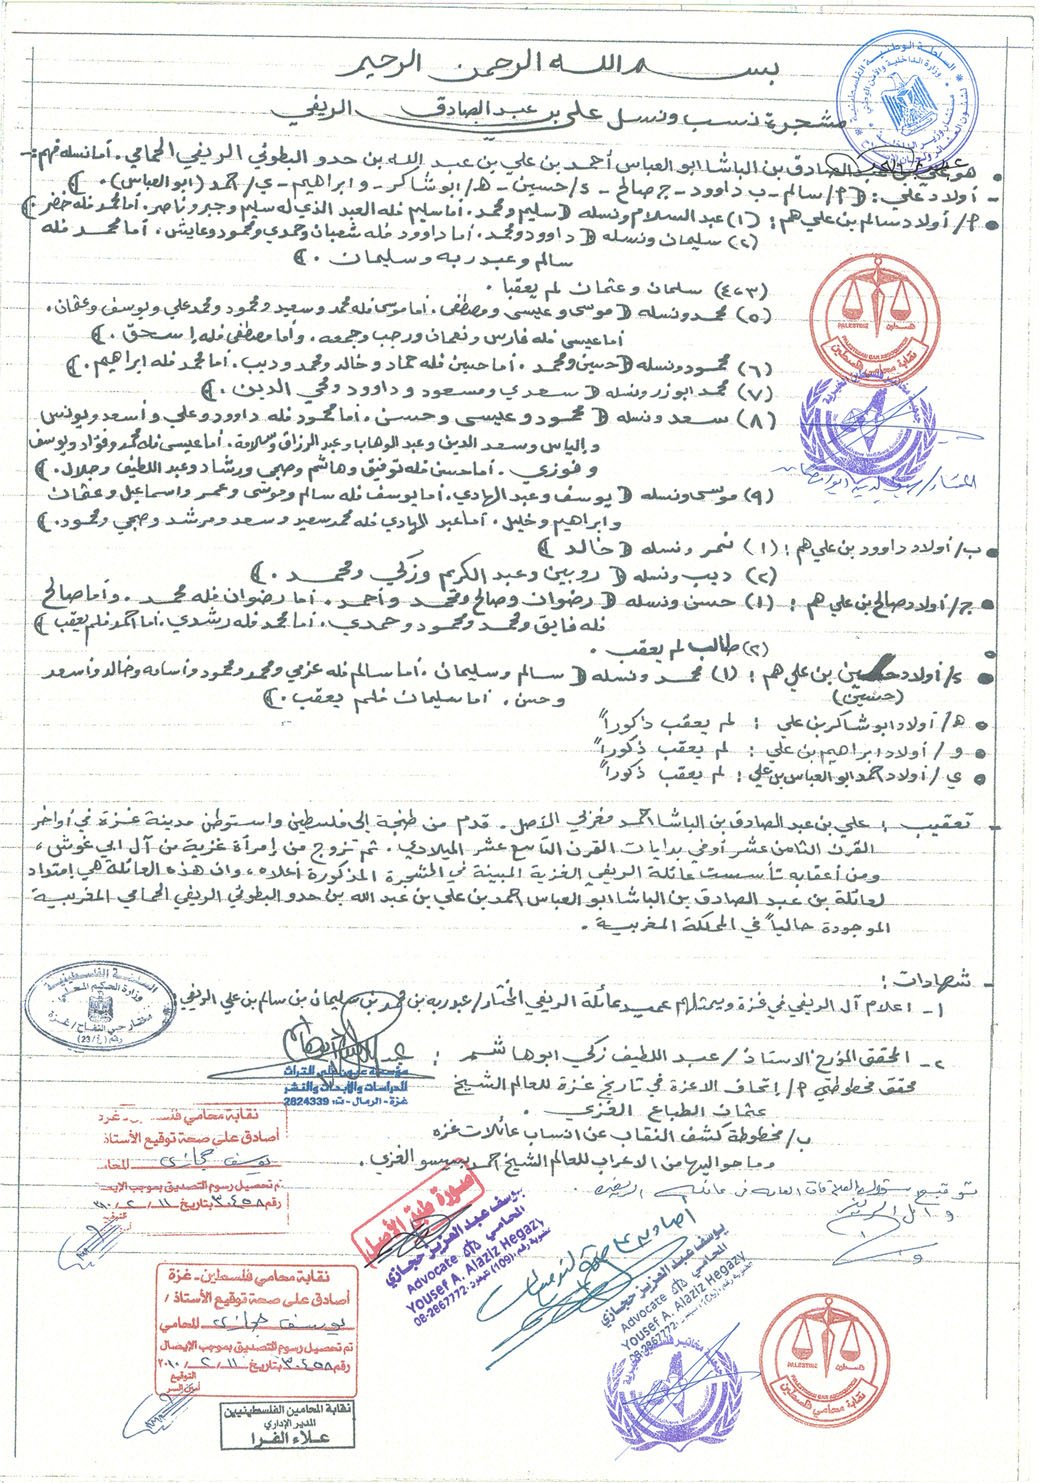 بسم الله الرحمن الرحيم
مشجرة نسب ونسل علي بن عبد الصادق الريفي
هو علي بن عبد الصادق بن الباشا ابو العباس أحمد بن علي بن عبد الله بن حدو البطوئي الريفي الحمامي. أما نسله فهم:-
- أولاد علي: (أ/ سالم - ب/ داوود - ج/ صالح - د/ حسين - هـ/ ابو شاكر - و/ ابراهيم - ي/ احمد (ابو العباس).)
أ/ أولاد سالم بن علي هم: (١) عبد السلام ونسله (سليم ومحمد. أما سليم فله العبد الذي له سليم وجبر وناصر. أما محمد فله خضر.)
(٢) سليمان ونسله (داوود ومحمد. أما داوود فله شعبان وحمدي ومحمود وعايش. أما محمد فله
سالم وعبد ربه وسليمان.)
(٣-٤) سلمان وعثمان لم يعقبا.
(٥) محمد ونسله (موسى وعيسى ومصطفى. أما موسى فله محمد وسعيد ومحمود ومحمد علي ويوسف وعثمان.
أما عيسى فله فارس ونعمان ورجب وجمعه. وأما مصطفى فله إسحق.)
(٦) محمود ونسله (حسين ومحمد. أما حسين فله حماد وخالد ومحمد وديب. أما محمد فله ابراهيم.)
(٧) محمد ابو زر ونسله (سعدي ومسعود وداوود ومحي الدين.)
(٨) سعد ونسله (محمود وعيسى وحسن. أما محمود فله داوود وعلي وأسعد ويونس
والياس وسعد الدين وعبد الوهاب وعبد الرزاق وسلامة. أما عيسى فله محمد وفؤاد ويوسف
وفوزي. أما حسن فله توفيق وهاشم وصبحي ورشاد وعبد اللطيف وجلال.)
(٩) موسى ونسله (يوسف وعبد الهادي. أما يوسف فله سالم وموسى وعمر واسماعيل وعثمان
وابراهيم وخليل. أما عبد الهادي فله محمد سعيد وسعد ومرشد وصبحي ومحمود.)
ب/ أولاد داوود بن علي هم: (١) نمر ونسله (خالد)
(٢) ديب ونسله (روبين وعبد الكريم وزكي ومحمد.)
ج/ أولاد صالح بن علي هم: (١) حسن ونسله (رضوان وصالح ومحمد وأحمد. أما رضوان فله محمد. وأما صالح
فله فايق ومحمد ومحمود وحمدي. أما محمد فله رشدي. أما أحمد فلم يعقب)
(٢) طالب لم يعقب.
د/ أولاد حسين بن علي هم: (١) محمد ونسله (سالم وسليمان. أما سالم فله عزمي ومحمد ومحمود وأسامه وخالد وأسعد
(حسين) وحسن. أما سليمان فلم يعقب.)
هـ/ أولاد ابو شاكر بن علي: لم يعقب ذكوراً
و/ أولاد ابراهيم بن علي: لم يعقب ذكوراً
ي/ أولاد احمد ابو العباس بن علي: لم يعقب ذكوراً
- تعقيب: علي بن عبد الصادق بن الباشا احمد مغربي الأصل. قدم من طنجة إلى فلسطين واستوطن مدينة غزة في أواخر
القرن الثامن عشر أو في بدايات القرن التاسع عشر الميلادي. ثم تزوج من إمرأة غزية من آل ابي غوش،
ومن أعقابه تأسست عائلة الريفي الغزية المبينة في المشجرة المذكورة أعلاه، وان هذه العائلة هي إمتداد
لعائلة بن عبد الصادق بن الباشا ابو العباس احمد بن علي بن عبد الله بن حدو البطوئي الريفي الحمامي المغربية
الموجودة حالياً في المملكة المغربية.
- شهادات:
١- اعلام آل الريفي في غزة ويمثلهم عميد عائلة الريفي المختار/ عبد ربه بن محمد بن سليمان بن سالم بن علي الريفي:
السلطة الفلسطينية
وزارة الحكم المحلي
مختار حي التفاح / غزة
رقم (23/٤)
٢- المحقق المؤرخ الاستاذ/ عبد اللطيف زكي ابو هاشم:
محقق مخطوطتي أ/ إتحاف الاعزة في تاريخ غزة للعالم الشيخ
عثمان الطباع الغزي.
ب/ مخطوطة كشف النقاب عن انساب عائلات غزه
وما حواليها من الاعراب للعالم الشيخ احمد بسيسو الغزي.
للدراسات والأبحاث والنشر
غزة - الرمال - ت: 2824339
نقابة محامي فلسطين - غزة
أصادق على صحة توقيع الأستاذ
يوسف حجازي المحامي
تم تحصيل رسوم التصديق بموجب الإيصال
رقم ٣٠٤٥٨ بتاريخ ١١/٢/٢٠١٠
صورة طبق الأصل
يوسف عبد العزيز حجازي
المحامي
Advocate
Yousef A. Alaziz Hegazy
08-2867772
يوسف عبد العزيز حجازي
المحامي
Advocate
Yousef A. Alaziz Hegazy
08-2867772
نقابة محامي فلسطين - غزة
أصادق على صحة توقيع الأستاذ /
يوسف حجازي المحامي
تم تحصيل رسوم التصديق بموجب الإيصال
رقم ٣٠٤٥٨ بتاريخ ١١/٢/٢٠١٠
التوقيع
أمين السر
نقابة المحامين الفلسطينيين
المدير الإداري
علاء الفرا
PALESTINE فلسطين
PALESTINIAN BAR ASSOCIATION
نقابة محامي فلسطين
PALESTINE فلسطين
PALESTINIAN BAR ASSOCIATION
نقابة محامي فلسطين